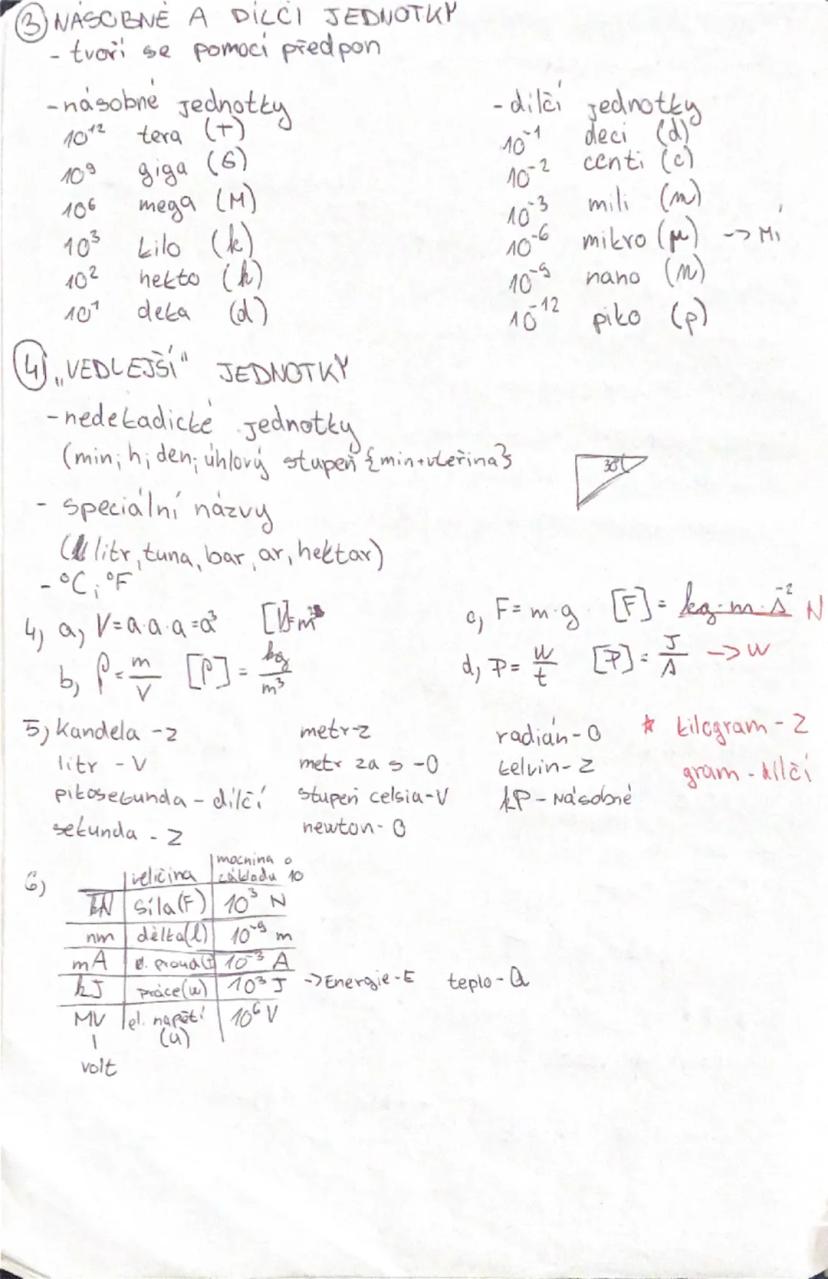 ③ NÁSOBNÉ A DÍLČÍ JEDNOTKY
- tvoří se pomocí předpon
- násobné jednotky
10¹² tera (T)
10⁹ giga (G)
10⁶ mega (M)
10³ kilo (k)
10² hekto (h)
10¹ deka (d)
- dílčí jednotky
10⁻¹ deci (d)
10⁻² centi (c)
10⁻³ mili (m)
10⁻⁶ mikro (μ) -> Mí
10⁻⁹ nano (n)
10⁻¹² piko (p)
④ „VEDLEJŠÍ" JEDNOTKY
- nedekadické jednotky
(min; h; den; úhlový stupeň {min+vteřina}
38°
- speciální názvy
(l litr, tuna, bar, ar, hektar)
- °C; °F
4) a, V=a·a·a=a³ [V]=m³
b, ρ=m/V [ρ]=kg/m³
c, F=m·g [F]=kg·m·s⁻² N
d, P=W/t [P]=J/s -> W
5) kandela - z
litr - V
pikosekunda - dílčí
sekunda - Z
metr - z
metr za s - O
stupeň celsia - V
newton - O
radián - O
kelvin - Z
kP - Násobné
* kilogram - Z
gram - dílčí
6)
veličina | mocnina o základu 10
kN | síla(F) | 10³ N
nm | délka(l) | 10⁻⁹ m
mA | e. proud(I) | 10⁻³ A
kJ | práce(w) | 10³ J -> Energie - E teplo - Q
MV | el. napětí (u) | 10⁶ V
volt